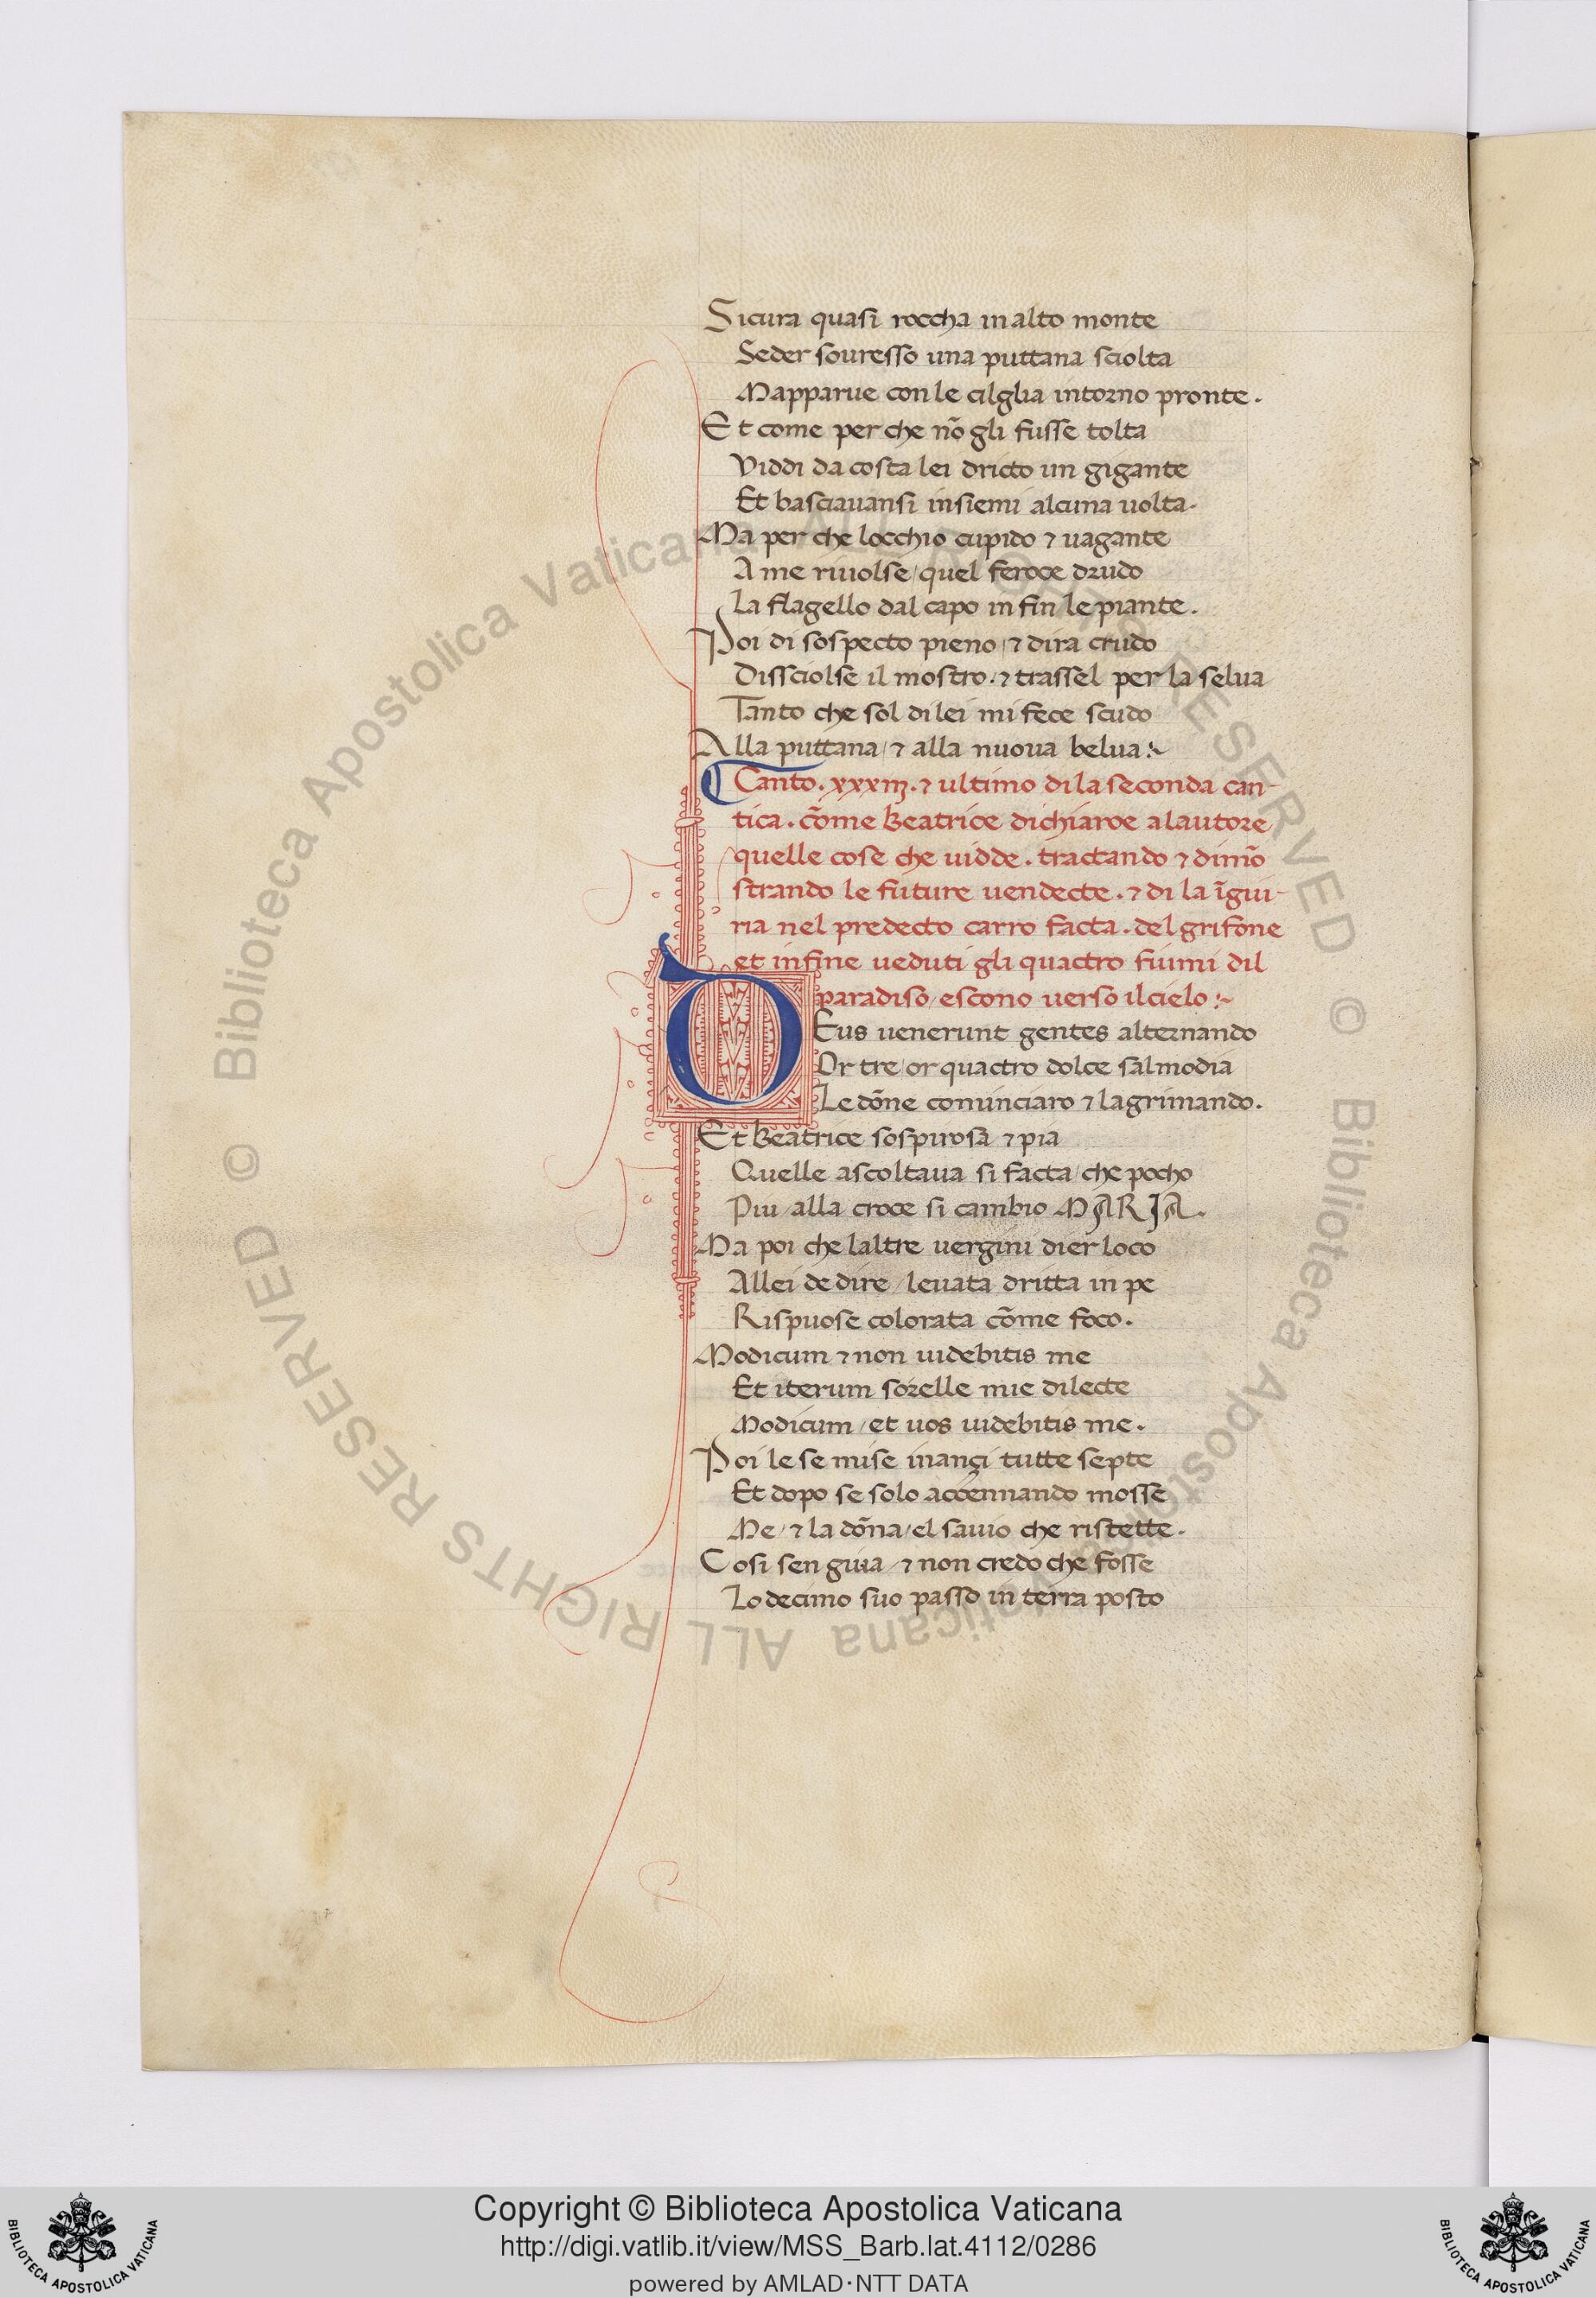 Sicura quasi roccha in alto monte
Seder souresso una puttana sciolta
Mapparue con le cilglia intorno pronte.
Et come per che nō gli fusse tolta
Viddi da costa lei dricto un gigante
Et basciauansi insiemi alcuna uolta.
Ma per che locchio cupido ⁊ uagante
A me riuolse/quel feroce drudo
La flagello dal capo in fin le piante.
Poi di sospecto pieno/⁊ dira crudo
Dissciolse il mostro.⁊ trassel per la selua
Tanto che sol di lei mi fece scudo
Alla puttana/⁊ alla nuoua belua:~
Canto.xxxiij.⁊ ultimo di la seconda can-
tica.cōme Beatrice dichiaroe alautore
quelle cose che uidde.tractando ⁊ dimō
strando le future uendecte.⁊ di la īgiu-
ria nel predecto carro facta.del grifone
et infine ueduti gli quactro fiumi dil
paradiso/escono uerso il cielo:~
DEus uenerunt gentes alternando
Or tre/or quactro dolce salmodia
Le dōne cominciaro ⁊ lagrimando.
Et Beatrice sospirosa ⁊ pia
Quelle ascoltaua si facta/che pocho
Piu/alla croce si cambio MARIA.
Ma poi che laltre uergini dier loco
Allei de dire/leuata dritta in pe
Rispuose colorata cōme foco.
Modicum ⁊ non uidebitis me
Et iterum sorelle mie dilecte
Modicum/et uos uidebitis me.
Poi le se mise inançi tutte septe
Et dopo se solo accennando mosse
Me/⁊ la dōna/el sauio che ristette.
Cosi sen giuia/⁊ non credo che fosse
Lo decimo suo passo in terra posto
© Biblioteca Apostolica Vaticana ALL RIGHTS RESERVED
© Biblioteca Apostolica Vaticana ALL RIGHTS RESERVED
Copyright © Biblioteca Apostolica Vaticana
http://digi.vatlib.it/view/MSS_Barb.lat.4112/0286
powered by AMLAD·NTT DATA
BIBLIOTECA APOSTOLICA VATICANA
BIBLIOTECA APOSTOLICA VATICANA